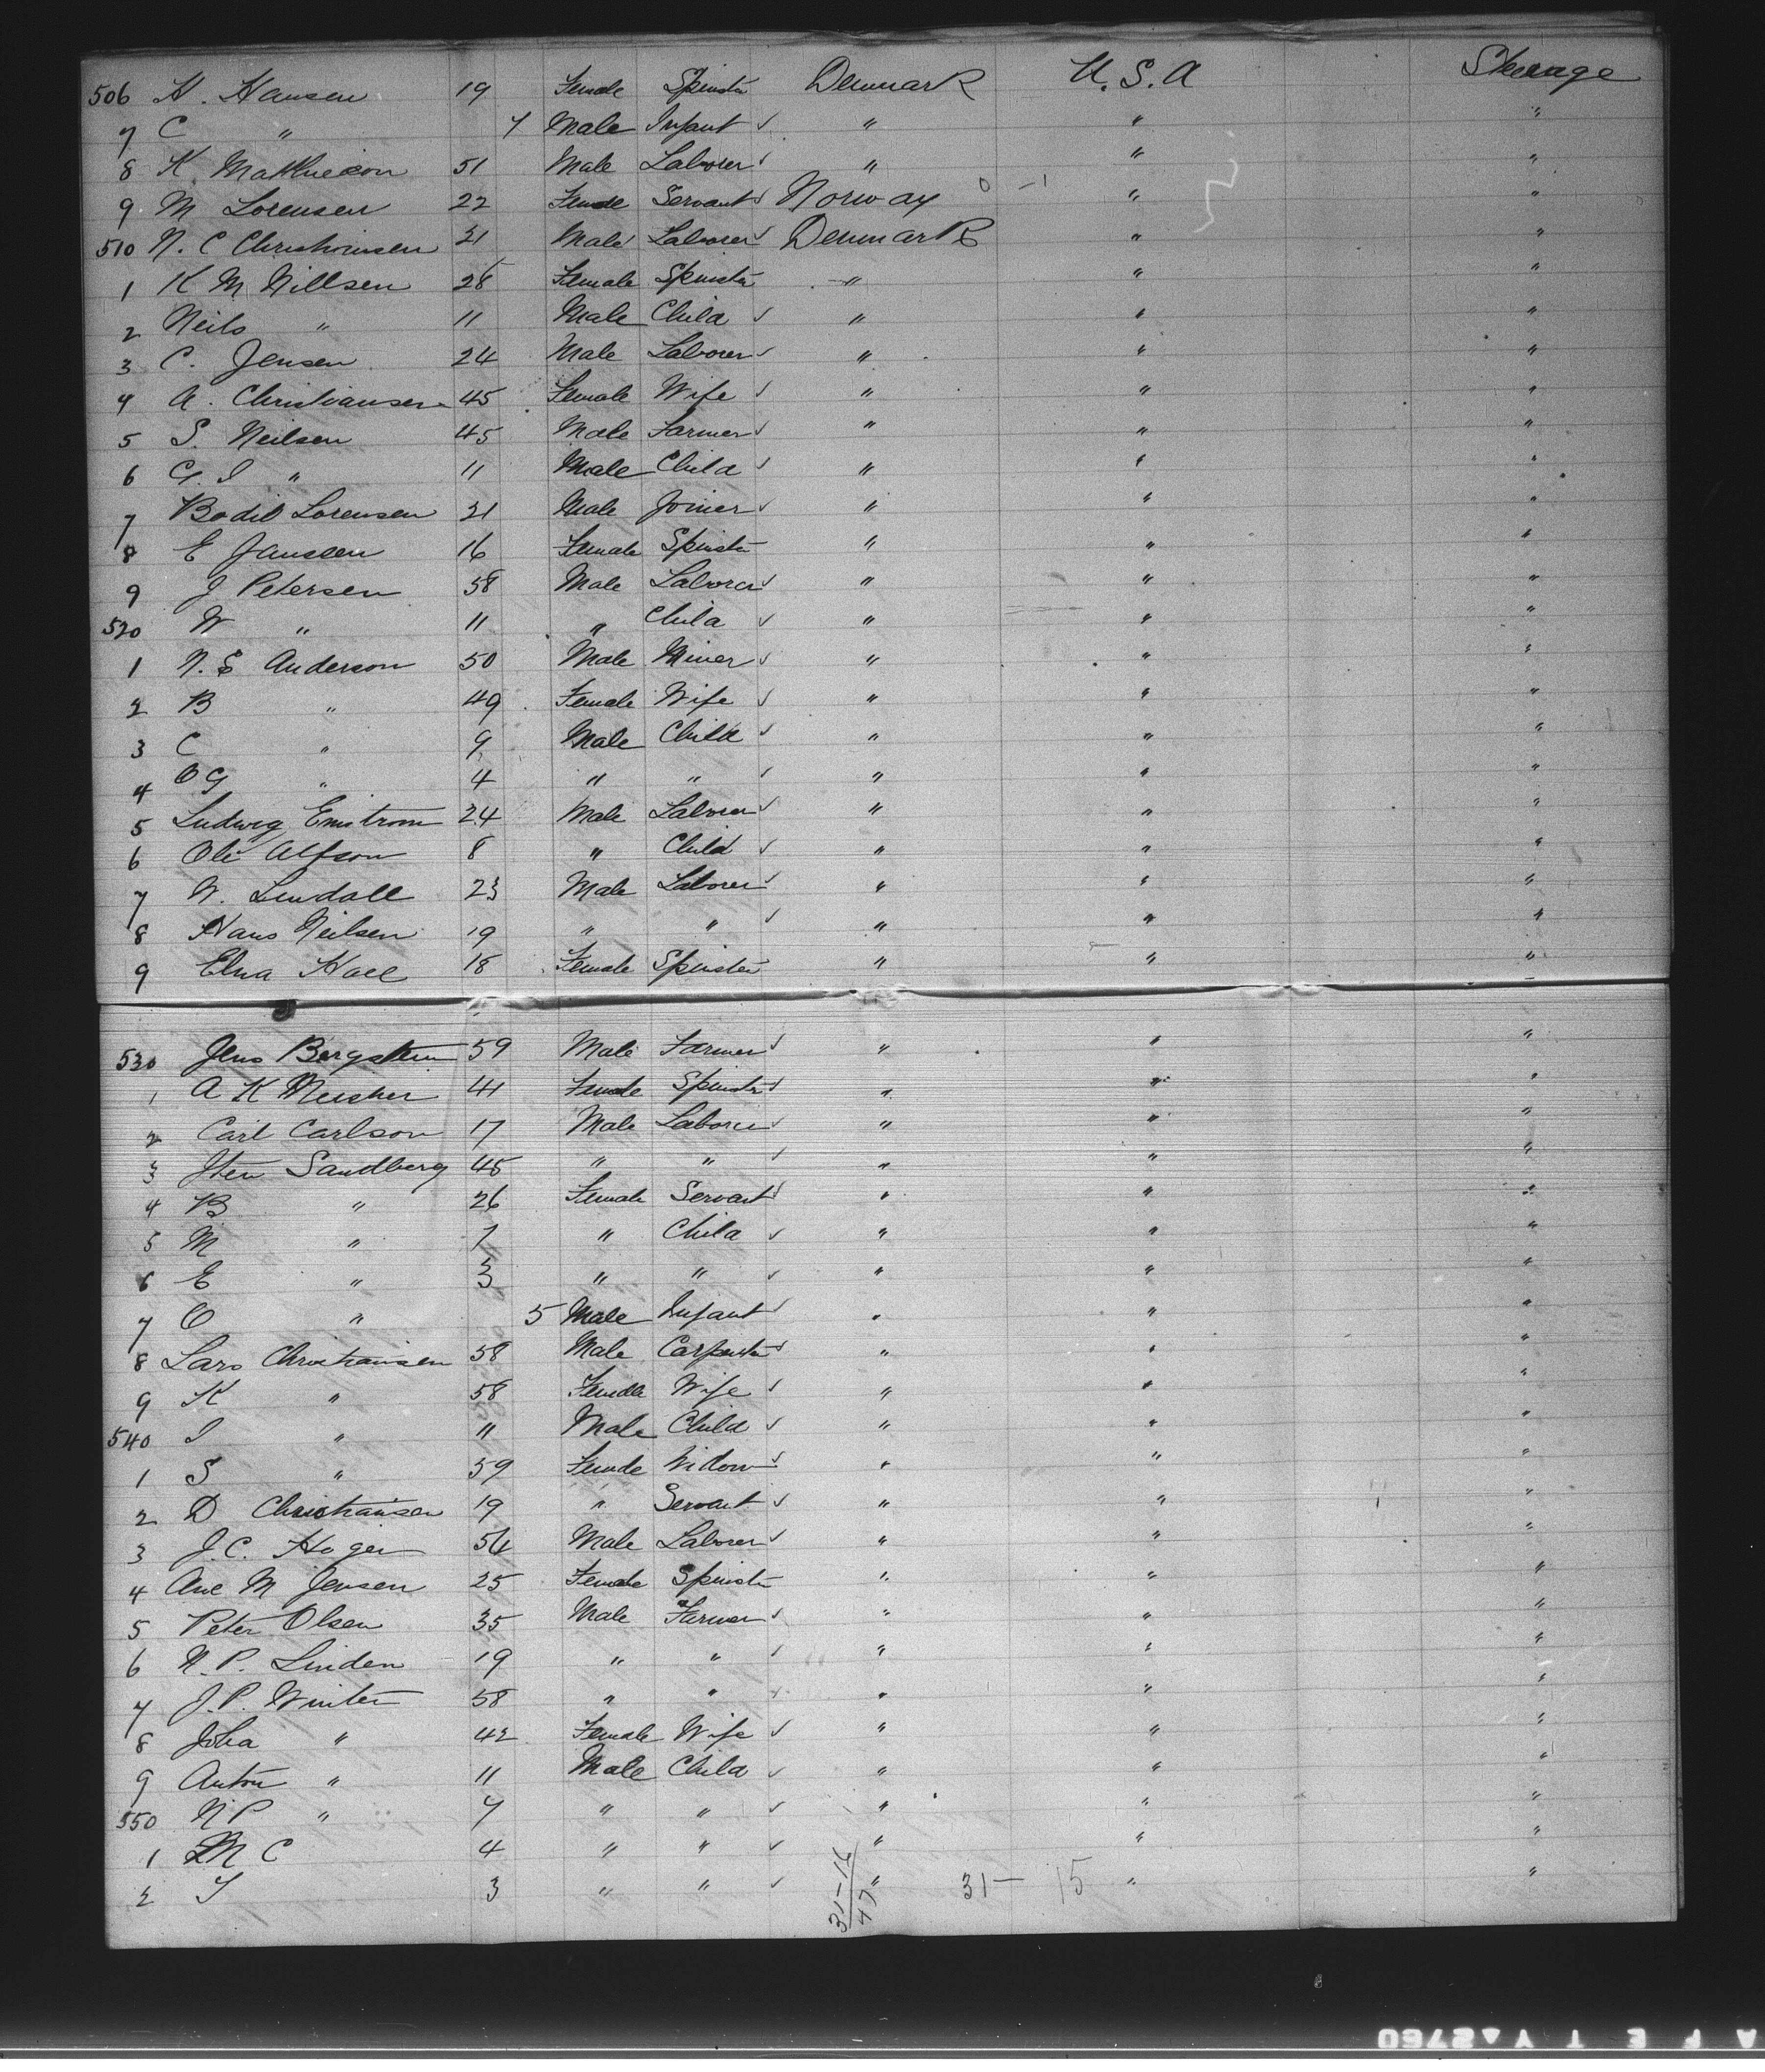 506 H. Hansen 19 Female Spinster Denmark U.S.A Steerage
7 C " 7 Male Infant ✓ " " "
8 K Matthieson 51 Male Laborer ✓ " " "
9 M Lorensen 22 Female Servant ✓ Norway 0 -1 " "
510 N. C Christiansen 21 Male Laborer ✓ Denmark " "
1 K M Nillsen 28 Female Spinster " " "
2 Neils " 11 Male Child ✓ " " "
3 C. Jensen 24 Male Laborer ✓ " " "
4 A. Christiansen 45 Female Wife ✓ " " "
5 S. Neilsen 45 Male Farmer ✓ " " "
6 G. I " 11 Male Child ✓ " " "
7 Bodil Lorensen 21 Male Joiner ✓ " " "
8 E Janssen 16 Female Spinster " " "
9 J Petersen 58 Male Laborer ✓ " " "
520 W " 11 " Child ✓ " " "
1 N. E Anderson 50 Male Miner ✓ " " "
2 B " 49 Female Wife ✓ " " "
3 C " 9 Male Child ✓ " " "
4 O G " 4 " " ✓ " " "
5 Ludwig Emstrom 24 Male Laborer ✓ " " "
6 Ole Alfson 8 " Child ✓ " " "
7 W. Lindall 23 Male Laborer ✓ " " "
8 Hans Neilsen 19 " " ✓ " " "
9 Elna Hall 18 Female Spinster " " "
530 Jens 59 Male Farmer ✓ " " "
1 A K 41 Female Spinster ✓ " " "
2 Carl Carlson 17 Male Laborer ✓ " " "
3 Sandberg 45 " " ✓ " " "
4 B " 26 Female Servant ✓ " " "
5 M " 7 " Child ✓ " " "
6 E " 3 " " ✓ " " "
7 O " 5 Male Infant ✓ " " "
8 Lars Christiansen 58 Male Carpenter ✓ " " "
9 K " 58 Female Wife ✓ " " "
540 I " 11 Male Child ✓ " " "
1 S " 59 Female Widow ✓ " " "
2 D Christiansen 19 " Servant ✓ " " "
3 J. C. Hoger 54 Male Laborer ✓ " " "
4 Ane M Jensen 25 Female Spinster " " "
5 Peter Olsen 35 Male Farmer ✓ " " "
6 N. P. Linden 19 " " ✓ " " "
7 J. P. Winter 58 " " ✓ " " "
8 Joha " 42 Female Wife ✓ " " "
9 Anton " 11 Male Child ✓ " " "
550 N P " 7 " " ✓ " " "
1 M C 4 " " ✓ " " "
2 3 " " ✓ " 31- 15 " "
31-16
47